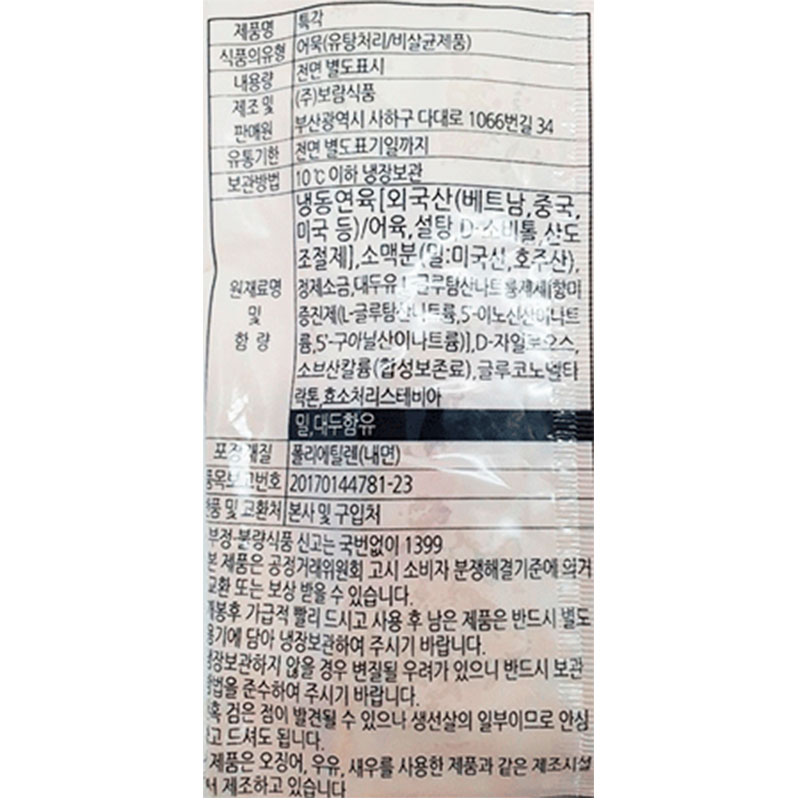 제품명 특각
식품의유형 어묵(유탕처리/비살균제품)
내용량 전면 별도표시
제조 및 (주)보람식품
판매원 부산광역시 사하구 다대로 1066번길 34
유통기한 전면 별도표기일까지
보관방법 10℃ 이하 냉장보관
냉동연육[외국산(베트남,중국,
미국 등)/어육,설탕,D-소비톨,산도
조절제],소맥분(밀:미국산,호주산),
원재료명 정제소금,대두유,L-글루탐산나트륨제제[향미
및 증진제(L-글루탐산나트륨,5'-이노신산이나트
함 량 륨,5'-구아닐산이나트륨)],D-자일로오스,
소브산칼륨(합성보존료),글루코노델타
락톤,효소처리스테비아
밀,대두함유
포장재질 폴리에틸렌(내면)
품목보고번호 20170144781-23
반품 및 교환처 본사 및 구입처
부정·불량식품 신고는 국번없이 1399
본 제품은 공정거래위원회 고시 소비자 분쟁해결기준에 의거
교환 또는 보상 받을 수 있습니다.
개봉후 가급적 빨리 드시고 사용 후 남은 제품은 반드시 별도
용기에 담아 냉장보관하여 주시기 바랍니다.
냉장보관하지 않을 경우 변질될 우려가 있으니 반드시 보관
방법을 준수하여 주시기 바랍니다.
간혹 검은 점이 발견될 수 있으나 생선살의 일부이므로 안심
하고 드셔도 됩니다.
제품은 오징어, 우유, 새우를 사용한 제품과 같은 제조시설
에서 제조하고 있습니다